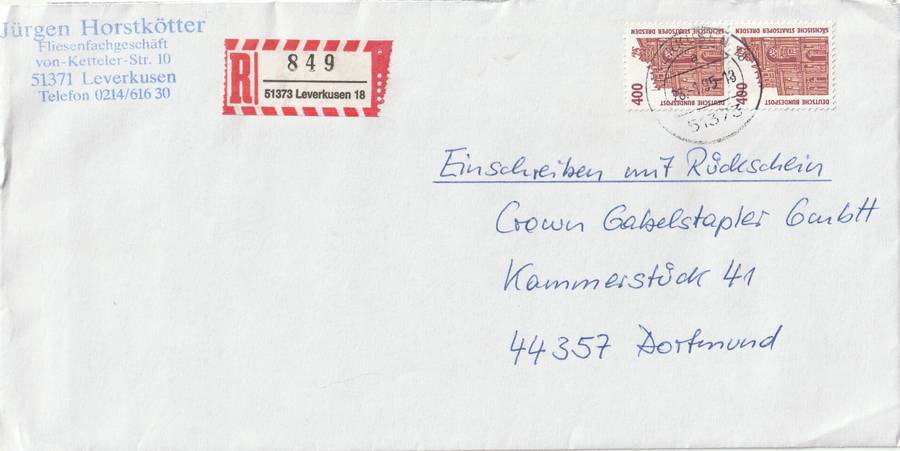 Jürgen Horstkötter
Fliesenfachgeschäft
von-Ketteler-Str. 10
51371 Leverkusen
Telefon 0214/616 30
R
849
51373 Leverkusen 18
SÄCHSISCHE STAATSOPER DRESDEN
400
DEUTSCHE BUNDESPOST
SÄCHSISCHE STAATSOPER DRESDEN
400
DEUTSCHE BUNDESPOST
51373
Einschreiben mit Rückschein
Crown Gabelstapler GmbH
Kammerstück 41
44357 Dortmund